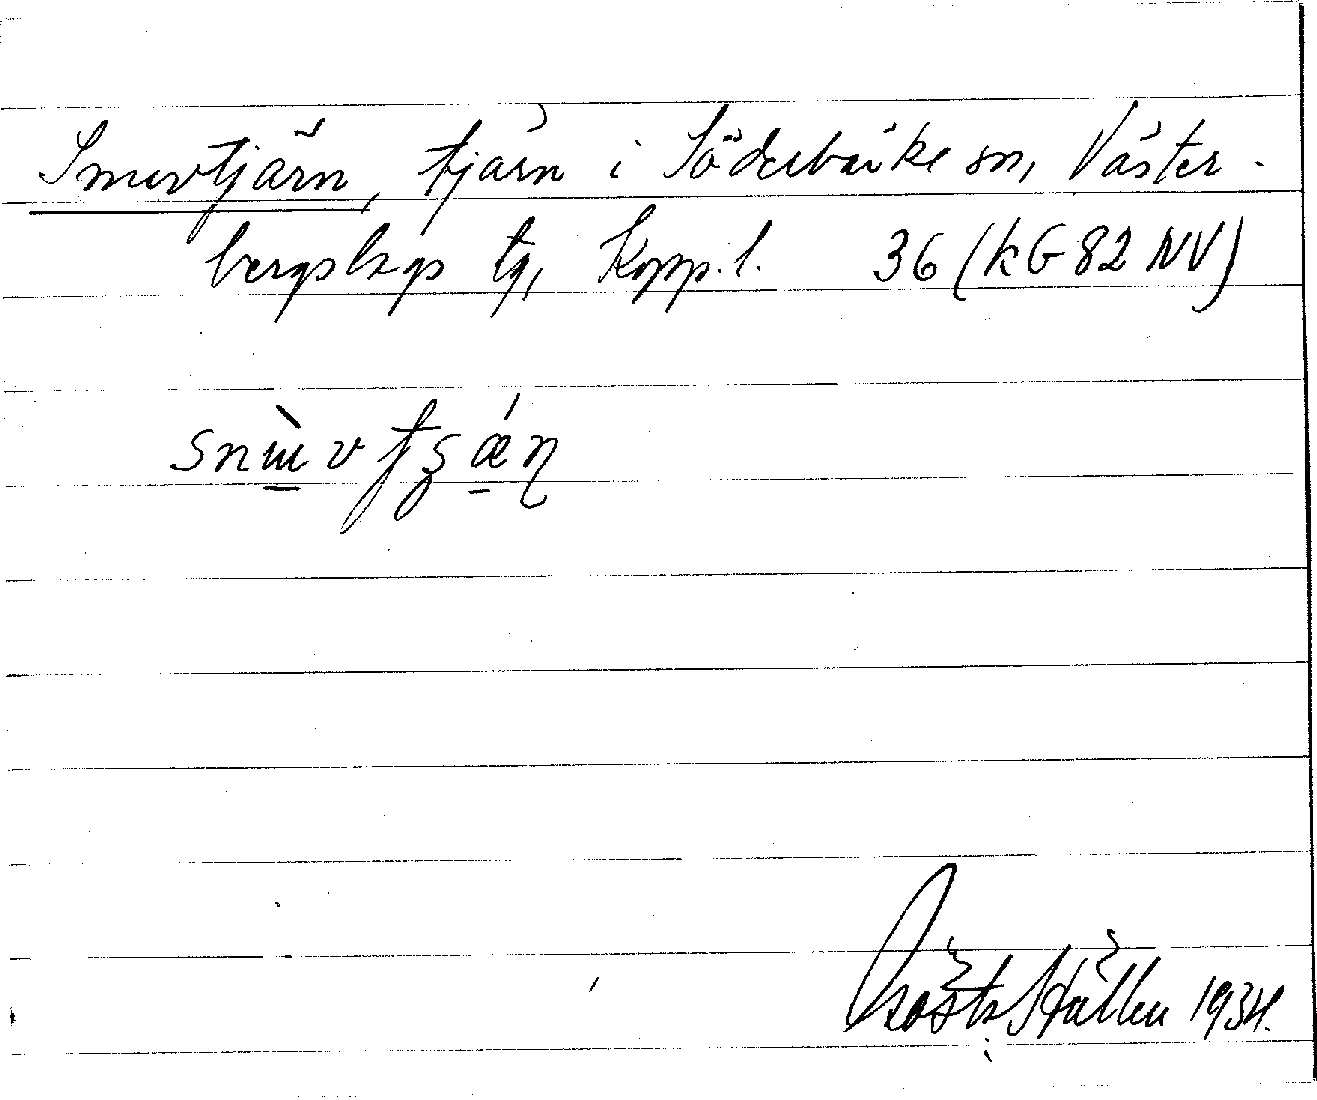 Snuvtjärn, tjärn i Söderbärke sn, Väster-
bergslags tg, Kopp. l. 36 (kG 82 NV)
snɯ̀vtʂǽɳ
Gösta 1934.